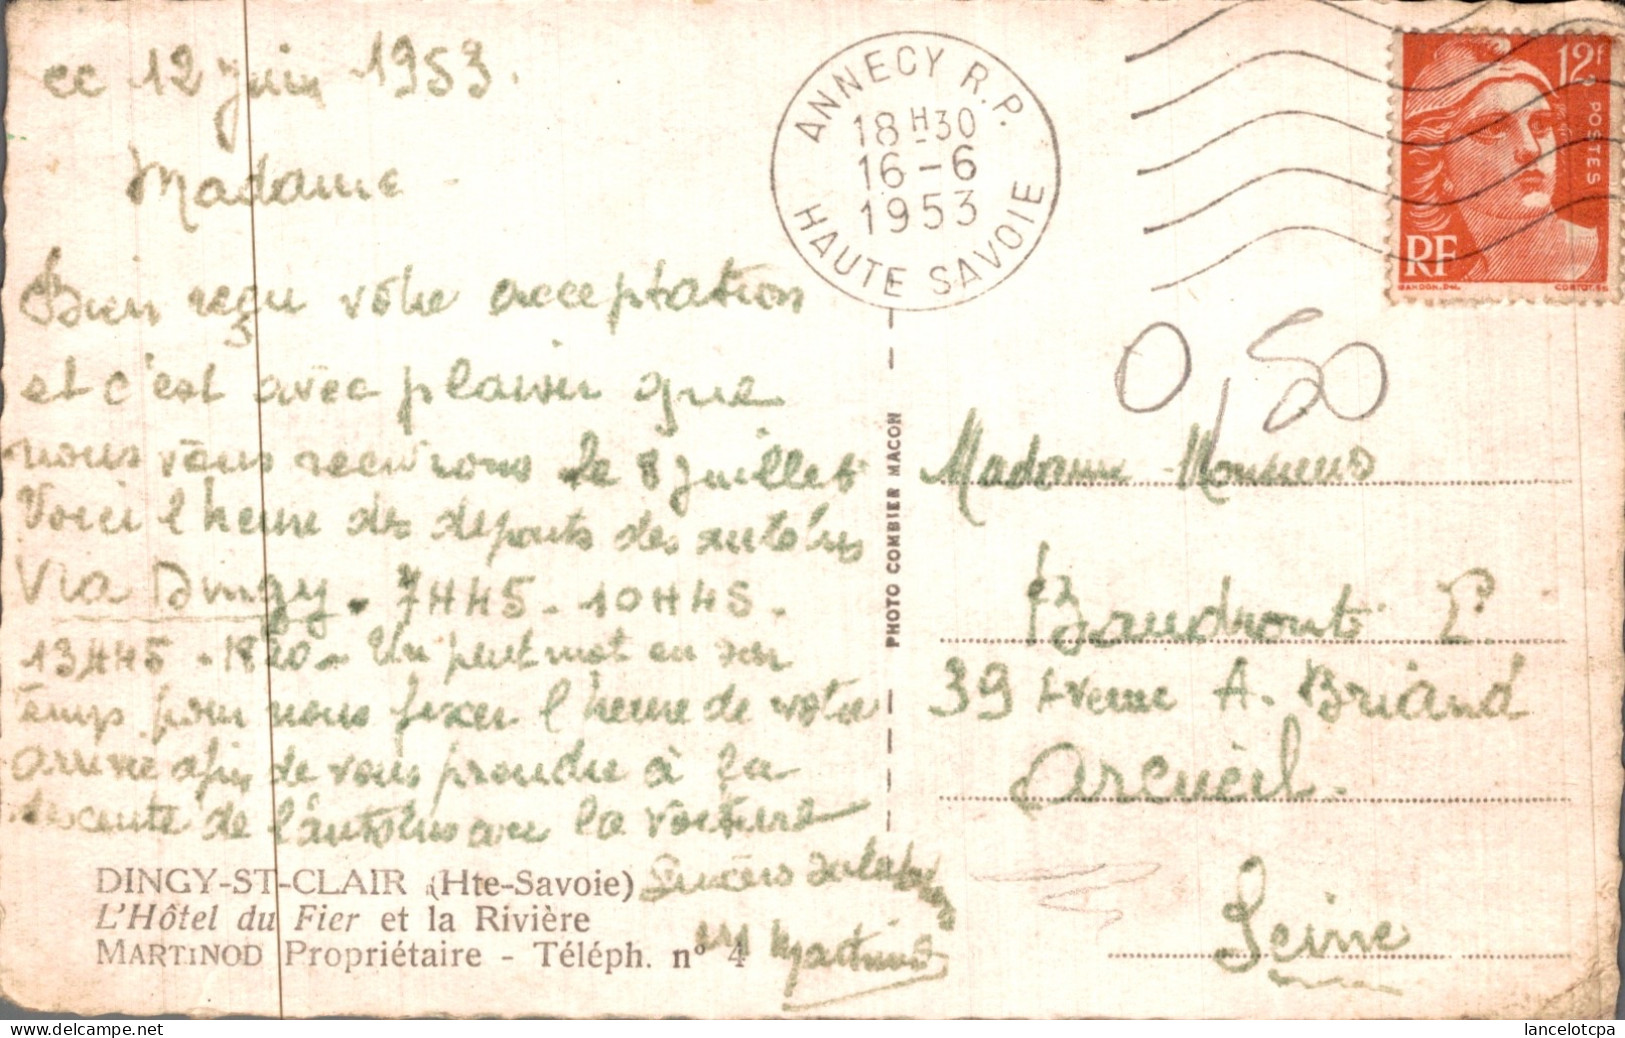 ce 12 Juin 1953.
Madame
Bien reçu votre acceptation
et c'est avec plaisir que
nous vous recevrons le 8 Juillet
Voici l'heure des departs des autobus
Via Dingy. 7H45 - 10H45 -
13H45 - 18 20 - Un petit mot en son
temps pour nous fixer l'heure de votre
arrivé afin de vous prendre à la
descente de l'autobus avec la voiture
Sincères salutations
Martinod
DINGY-ST-CLAIR (Hte-Savoie)
L'Hôtel du Fier et la Rivière
MARTINOD Propriétaire - Téléph. n° 4
PHOTO COMBIER MACON
ANNECY R.P.
18H30
16-6
1953
HAUTE SAVOIE
12F
POSTES
RF
GANDON.DEL.
CORTOT.SC
0,50
Madame Monsieur
P.
39 Avenue A. Briand
Arcueil.
Seine
lancelotcpa